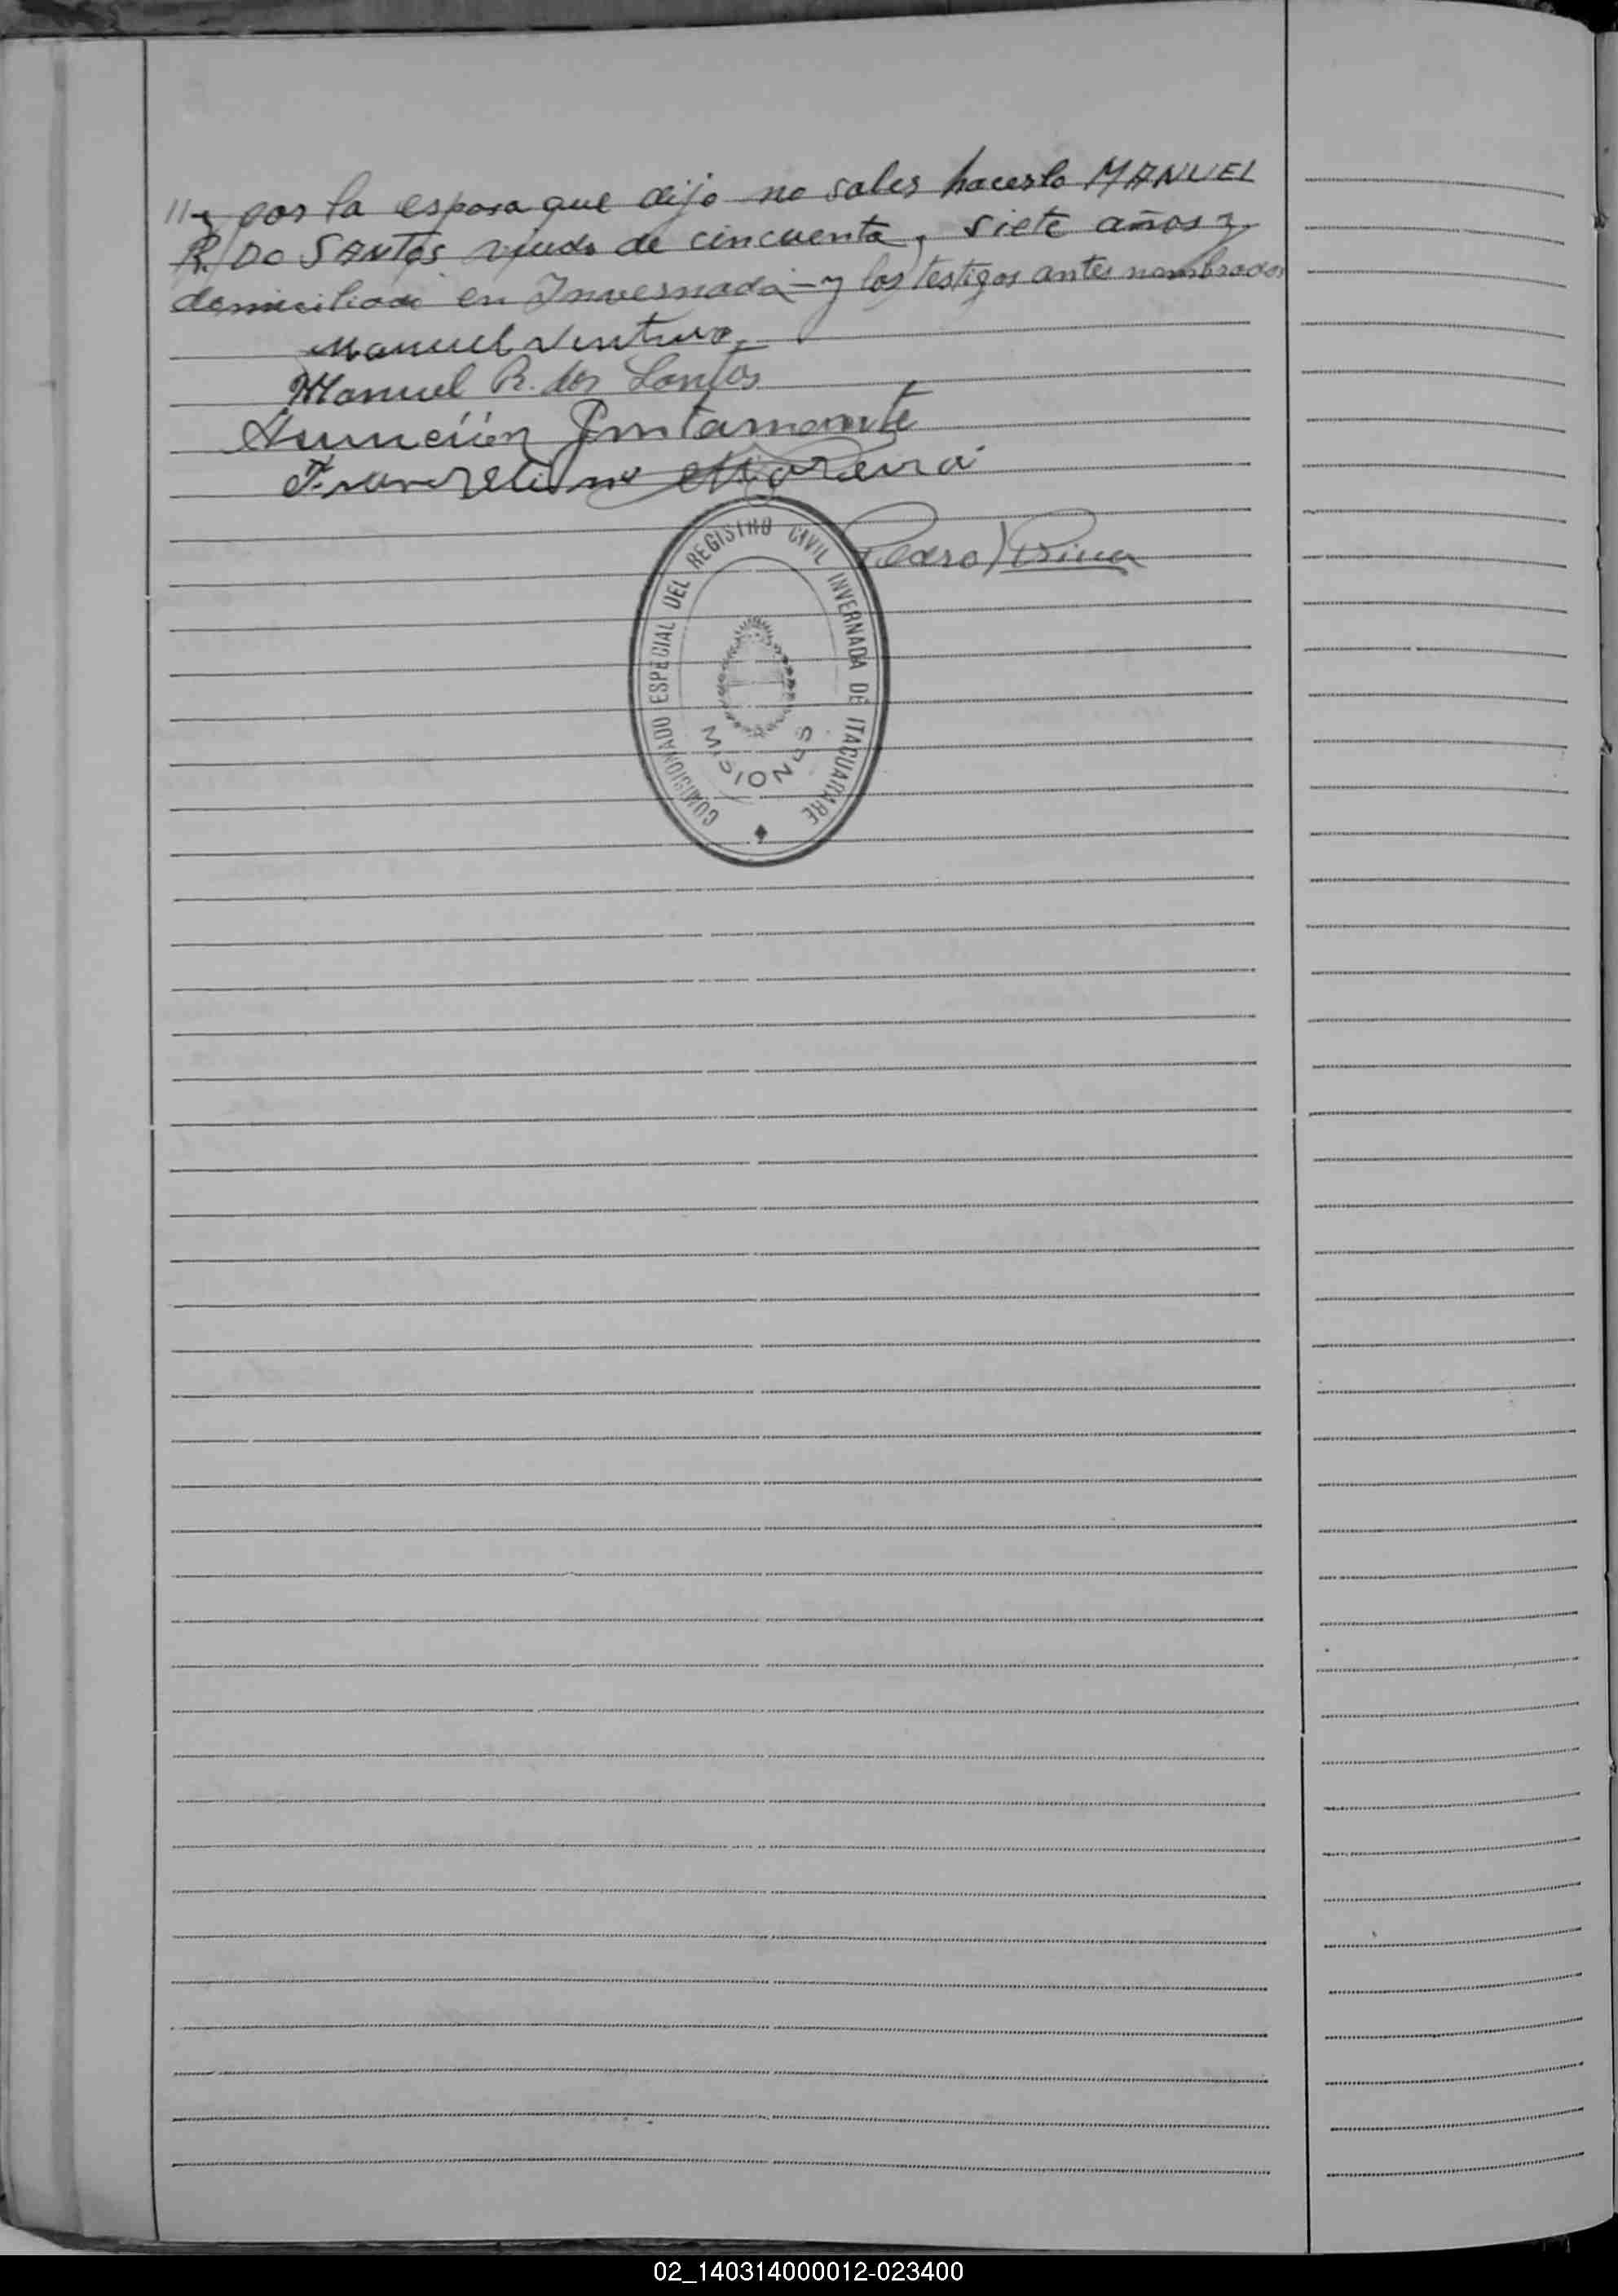 // y por la esposa que dijo no saber hacerlo MANUEL
R. DO SANTOS viudo de cincuenta y siete años y
domiciliado en Invernada - y los testigos antes nombrados
Manuel Ventura
Manuel R. dos Santos
Asunción
Moreira
Pedro
COMISIONADO ESPECIAL DEL REGISTRO CIVIL INVERNADA DE ITACUARARE
MISIONES
02_140314000012-023400